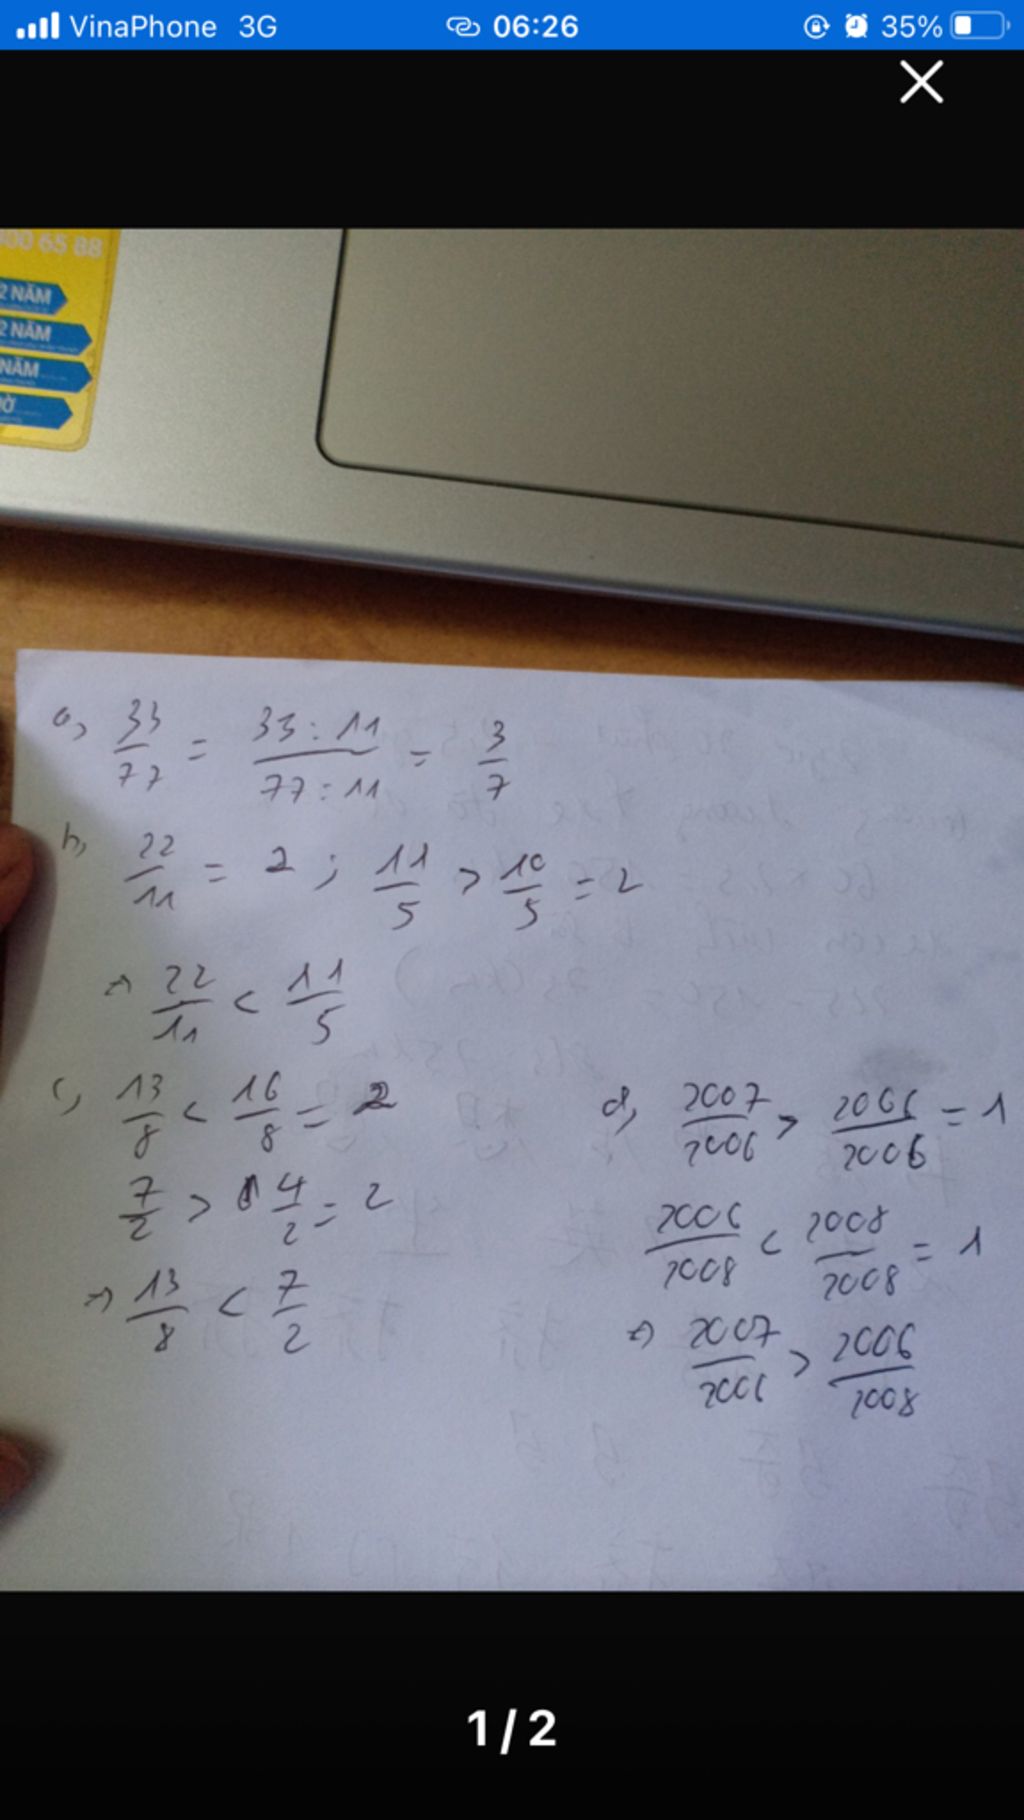 VinaPhone 3G 06:26 35%
00 65 88
2 NĂM
2 NĂM
NĂM
a, 33/77 = 33:11/77:11 = 3/7
b, 22/11 = 2 ; 11/5 > 10/5 = 2
=> 22/11 < 11/5
c, 13/8 < 16/8 = 2
7/2 > 4/2 = 2
=> 13/8 < 7/2
d, 2007/2006 > 2006/2006 = 1
2006/2008 < 2008/2008 = 1
=> 2007/2006 > 2006/2008
1/2